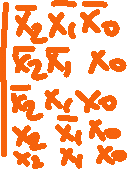 x̅₂ x̅₁ x̅₀
x̅₂ x̅₁ x₀
x̅₂ x₁ x₀
x₂ x̅₁ x₀
x₂ x₁ x₀